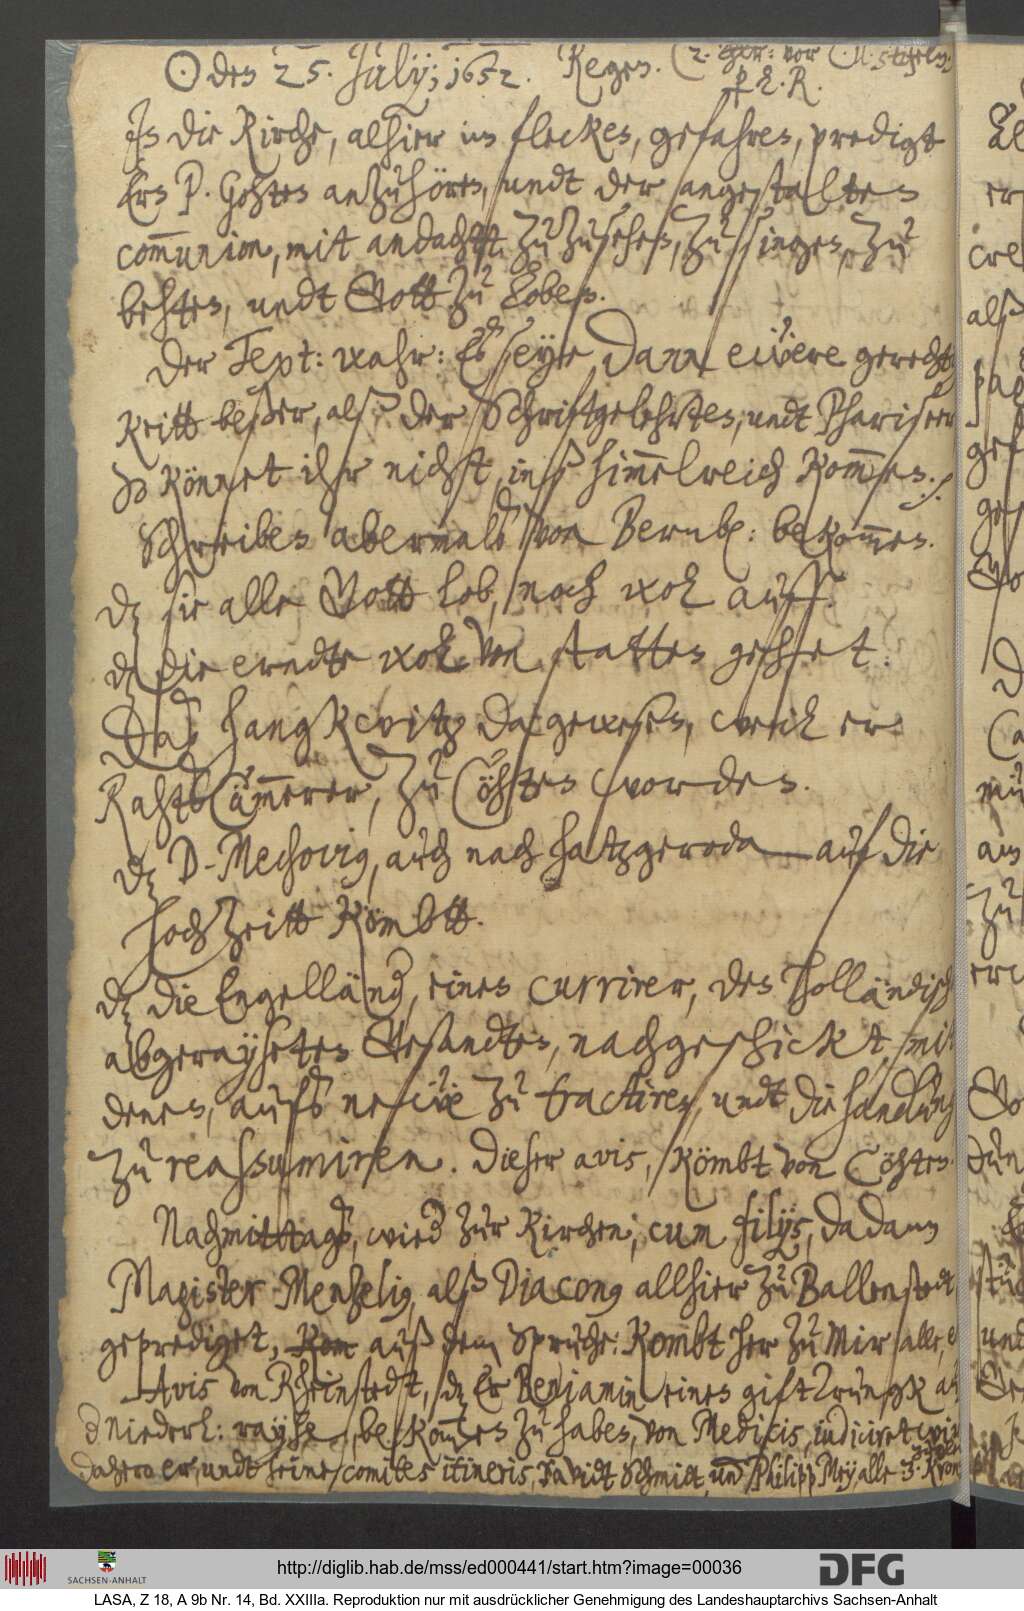 ☉ den 25. July; 1652. Regen.
In die Kirche, alhier im flecken, gefahren, predigt
Ern P. Gohtes anzuhören, undt der angestalten
com̄union, mit andacht, zu zusehen, zu singen, zu
behten, undt Gott zu loben.
Der Text: wahr: Es seye dann eẅere gerechtig
Keitt beßer, alß der Schriftgelehrten, undt Phariseer
so könnet ihr nicht, inß him̄elreich kom̄en. ⁒
Schreiben abermals von Bernb: bekom̄en.
dz sie alle Gott lob, noch wol auff.
dz die erndte wol von statten gehet:
Das Hangkwitz da gewesen, weil er
Rahts Cäm̄erer, zu Cöhten worden.
dz D. Mechovig, auch nach hatzgeroda auf die
hochzeitt kömbtt.
dz die Engelländer, einen currirer, dem Holländisch
abgerayseten Gesandten, nachgeschickt, mit
denen, aufs neẅe zu tractiren, undt die handlung
zu reassumiren. Dieser avis, kömbt von Cöhten.
Nachmittags, wieder zur Kirchen, cum filijs, da dann
Magister Menzelig, alß Diacong allhier zu Ballenstedt
geprediget, auß dem Spruche: Kombt her zu mir alle,
Avis von Rheinstedt, dz Er Benjamin einen gift Trungk auf
Niederl: rayse, bekom̄en zu haben, von Medicis, iudiciret wir
dahero er, undt seine comites itineris, Davidt Schmidt, und Philipp Mey, alle 3.
http://diglib.hab.de/mss/ed000441/start.htm?image=00036
DFG
SACHSEN-ANHALT
LASA, Z 18, A 9b Nr. 14, Bd. XXIIIa. Reproduktion nur mit ausdrücklicher Genehmigung des Landeshauptarchivs Sachsen-Anhalt